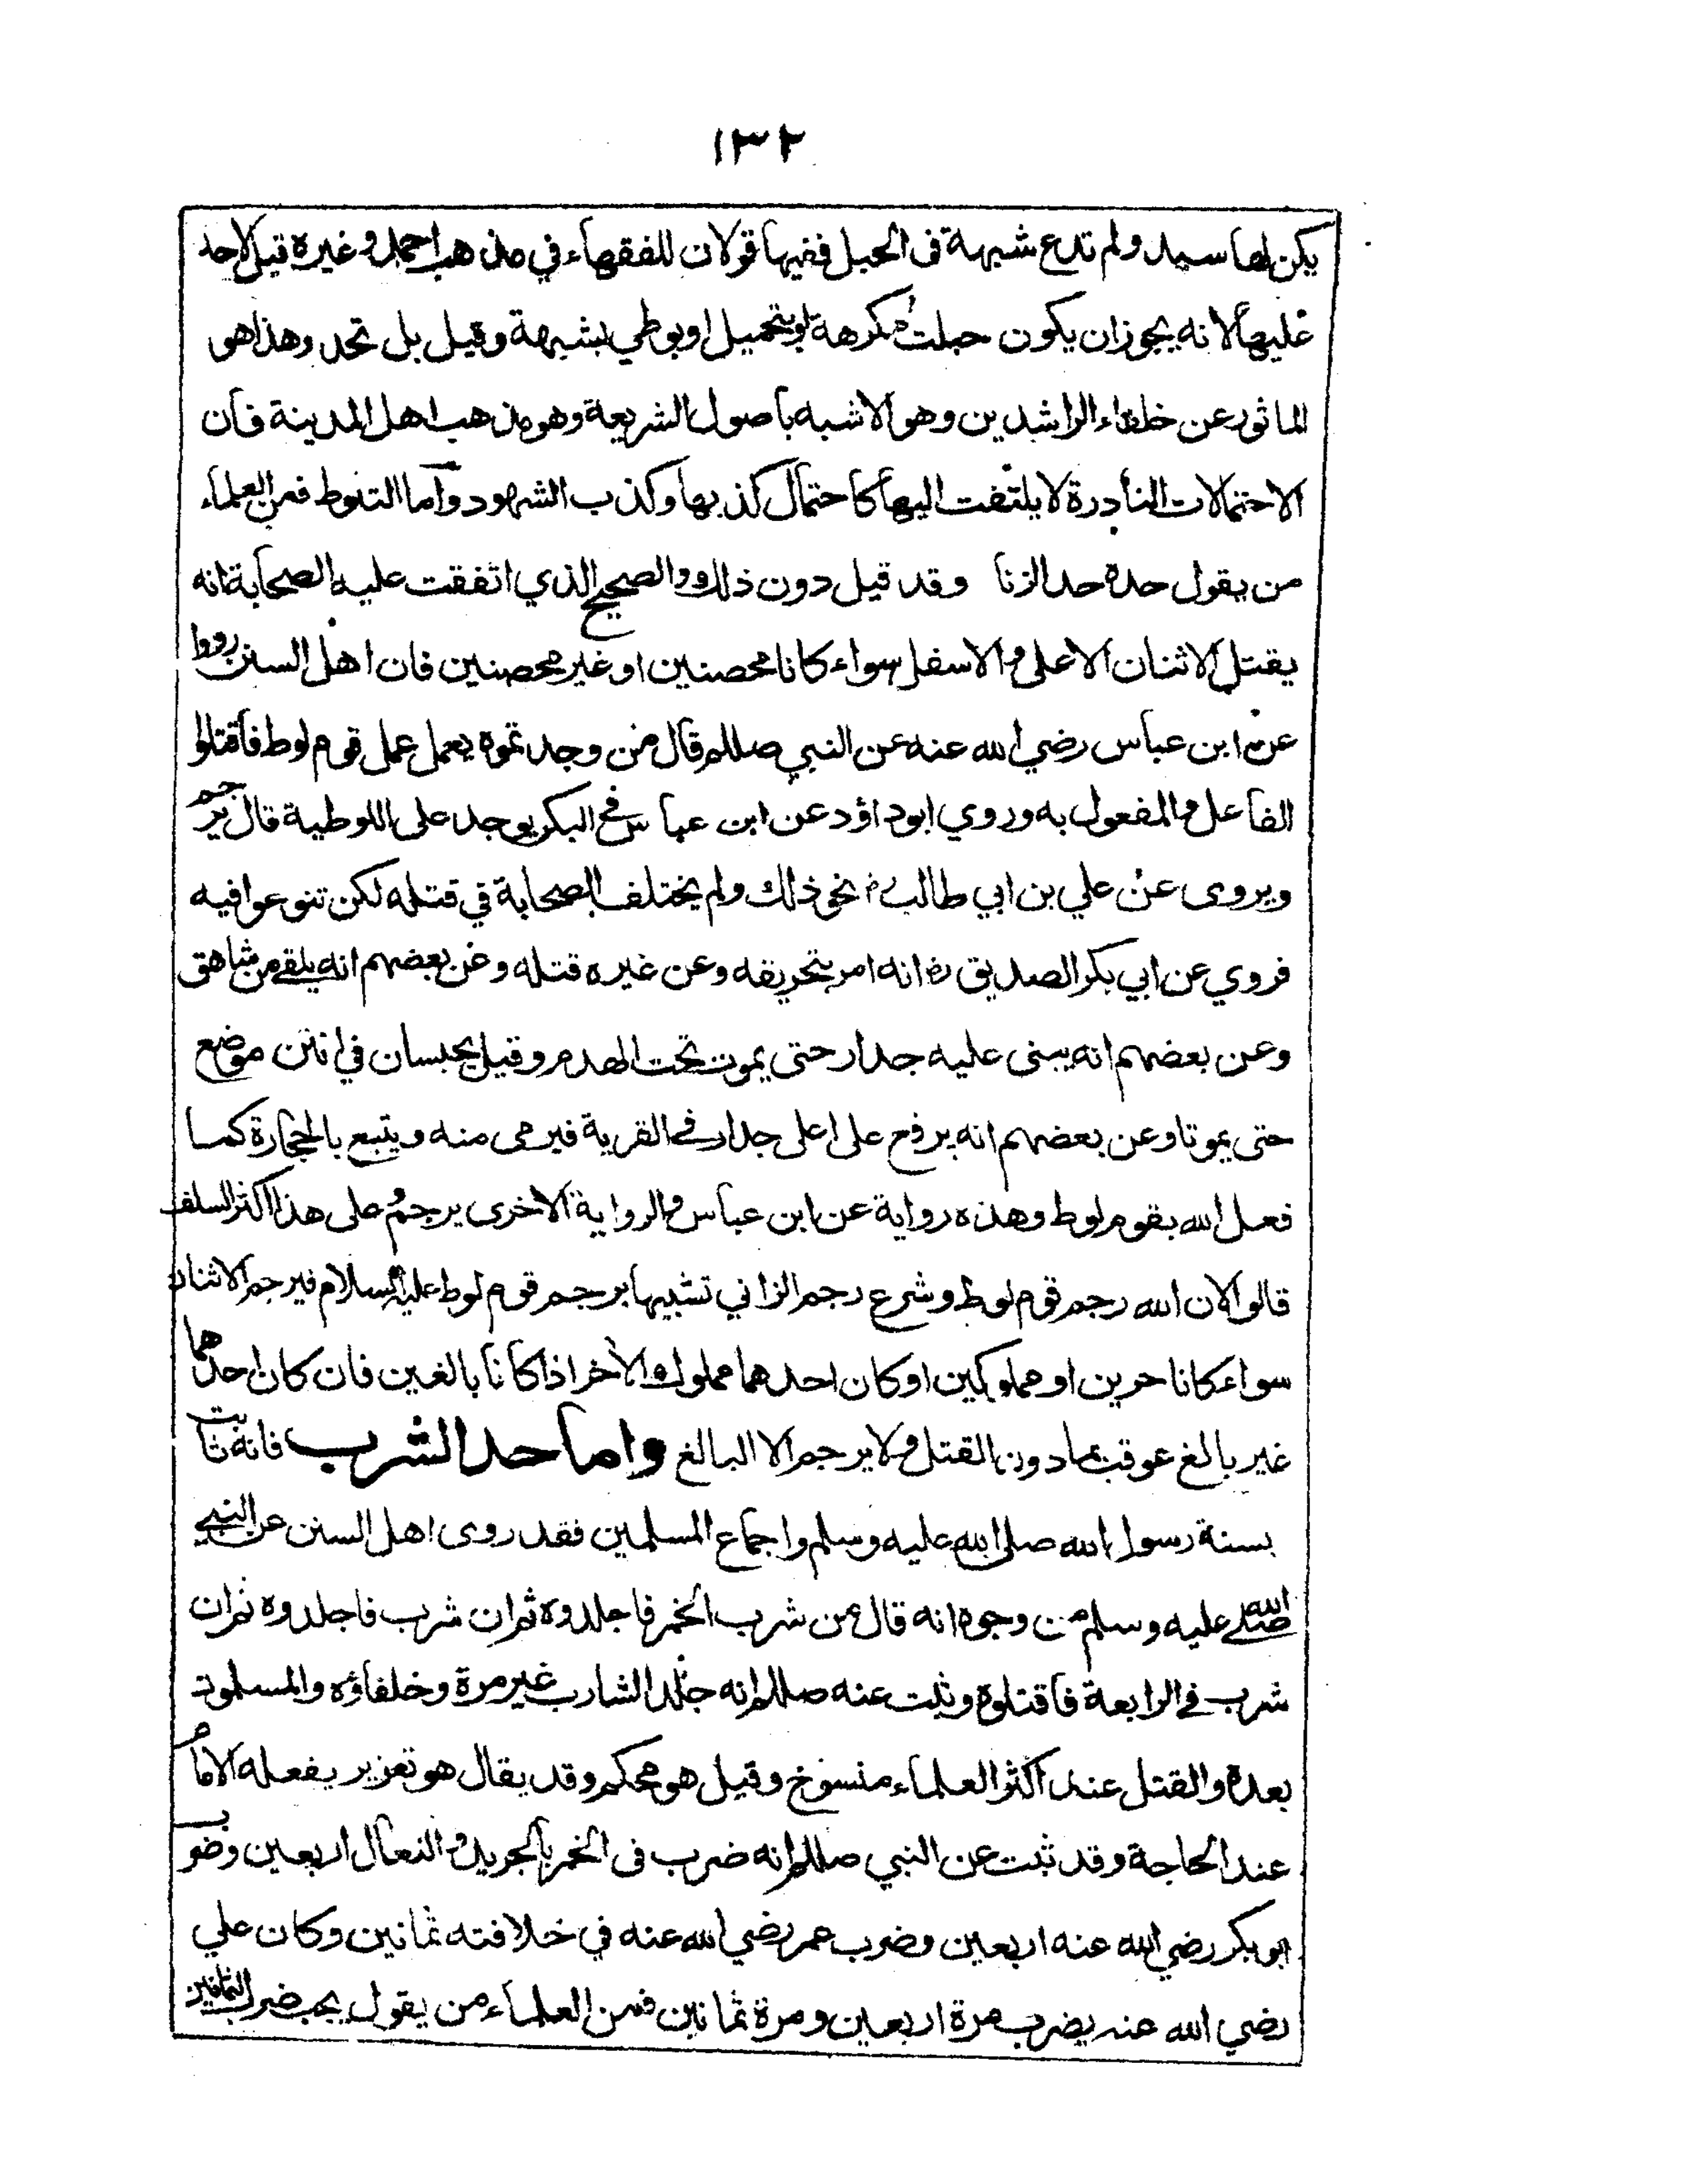 ١٣٢
يكن لها سيد ولم تدع شبهة فى الحبل ففيها قولان للفقهاء في مذهب احمد وغيره قيل لا حد
عليها لانه يجوز ان يكون حبلت مكرهة او بتحميل او بوطي بشبهة وقيل بل تحد وهذا هو
الماثور عن خلفاء الراشدين وهو الاشبه باصول الشريعة وهو مذهب اهل المدينة فان
الاحتمالات النادرة لا يلتفت اليها كاحتمال كذبها وكذب الشهود واما التلوط فمن العلماء
من يقول حده حد الزنا وقد قيل دون ذلك والصحيح الذي اتفقت عليه الصحابة انه
يقتل الاثنان الاعلى والاسفل سواء كانا محصنين او غير محصنين فان اهل السنن رووا
عن ابن عباس رضي الله عنه عن النبي صللم قال من وجدتموه يعمل عمل قوم لوط فاقتلوا
الفاعل والمفعول به وروي ابو داؤد عن ابن عباس في البكر يوجد على اللوطية قال يرجم
ويروى عن علي بن ابي طالب رض نحو ذلك ولم يختلف الصحابة في قتله لكن تنوعوا فيه
فروي عن ابي بكر الصديق رض انه امر بتحريقه وعن غيره قتله وعن بعضهم انه يلقے من شاهق
وعن بعضهم انه يبنى عليه جدار حتى يموت تحت الهدم وقيل يحبسان في انتن موضع
حتى يموتا وعن بعضهم انه يرفع على اعلى جدار في القرية فيرمى منه ويتبع بالحجارة كما
فعل الله بقوم لوط وهذه رواية عن ابن عباس والرواية الاخرى يرجم وعلى هذا اكثر السلف
قالوا لان الله رجم قوم لوط وشرع رجم الزاني تشبيها برجم قوم لوط عليه السلام فيرجم الاثنان
سواء كانا حرين او مملوكين او كان احدهما مملوك الاخر اذا كانا بالغين فان كان احدهما
غير بالغ عوقب بما دون القتل ولا يرجم الا البالغ واما حد الشرب فانه ثابت
بسنة رسول الله صلى الله عليه وسلم واجماع المسلمين فقد روى اهل السنن عن النبي
صلے الله عليه وسلم من وجوه انه قال من شرب الخمر فاجلدوه ثم ان شرب فاجلدوه ثم ان
شرب في الرابعة فاقتلوه وثبت عنه صللم انه جلد الشارب غير مرة وخلفاؤه والمسلمون
بعده والقتل عند اكثر العلماء منسوخ وقيل هو محكم وقد يقال هو تعزير يفعله الامام
عند الحاجة وقد ثبت عن النبي صللم انه ضرب فى الخمر بالجريد والنعال اربعين وضرب
ابو بكر رضي الله عنه اربعين وضرب عمر رضي الله عنه في خلافته ثمانين وكان علي
رضي الله عنه يضرب مرة اربعين ومرة ثمانين فمن العلماء من يقول يجب ضرب الثمانين